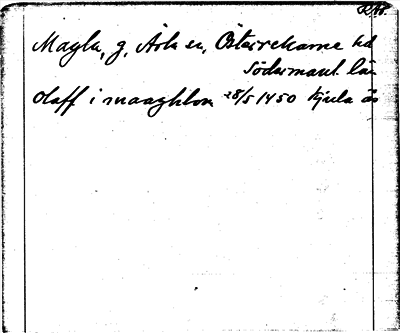 RAp.
Magla, g, Årla sn, Österrekarne hd
Södermanl. län
Olaff i maaghlom 28/5 1450 Kjula äs